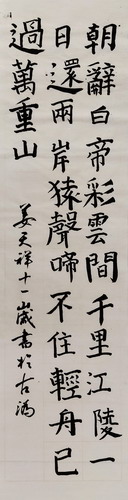 朝辭白帝彩雲間千里江陵一
日還兩岸猿聲啼不住輕舟已
過萬重山
姜天祥十一歲書於古滴